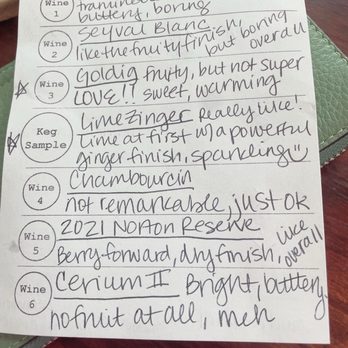 Wine 1
buttery, boring
Wine 2 Seyval Blanc
like the fruity finish, but boring overall
Wine 3 Goldig fruity, but not super
LOVE!! sweet, warming
Keg Sample Limezinger Really like!
Lime at first w/ a powerful
ginger finish, sparkling
Wine 4 Chambourcin
not remarkable, just ok
Wine 5 2021 Norton Reserve
Berry forward, dry finish, like overall
Wine 6 Cerium II Bright, buttery,
no fruit at all, meh